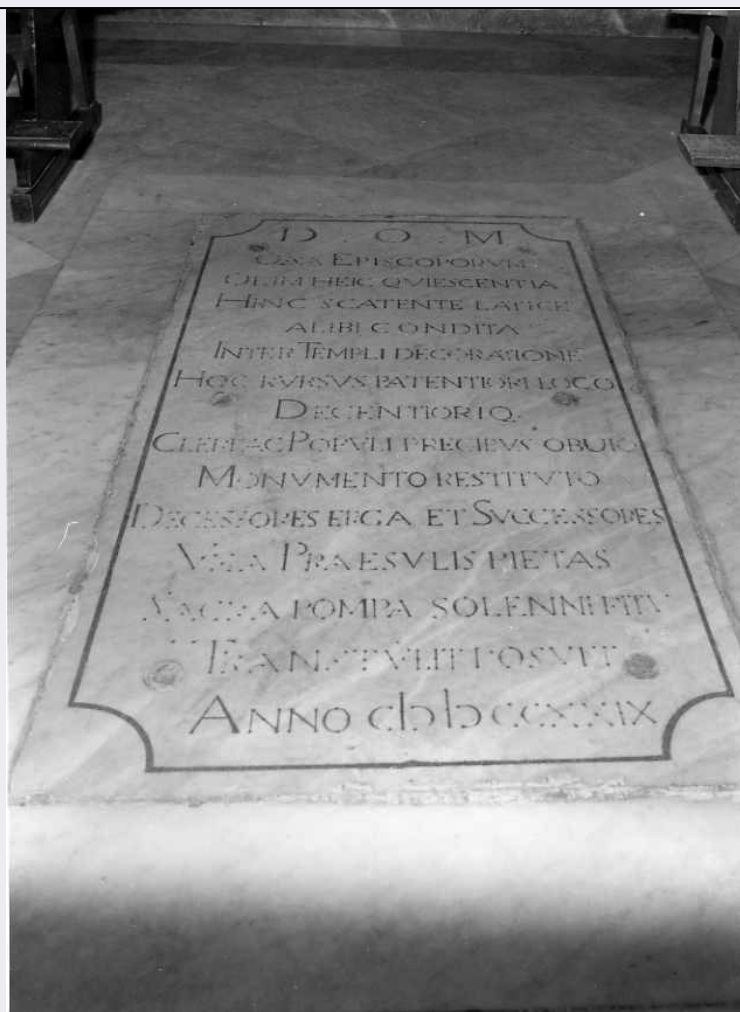 D . O . M
OSSA EPISCOPORVM
OLIM HEIC QVIESCENTIA
HINC SCATENTE LATICE
ALIBI CONDITA
INTER TEMPLI DECORATIONE
HOC RVRSVS PATENTIORI LOCO
DECENTIORIQ.
CLERI AC POPVLI PRECIBVS OBVIO
MONVMENTO RESTITVTO
DECESSORES ERGA ET SVCCESSORES
PRAESVLIS PIETAS
POMPA SOLENNI RITV
TRANSTVLIT POSVIT
ANNO CIↃIↃCCXXIX